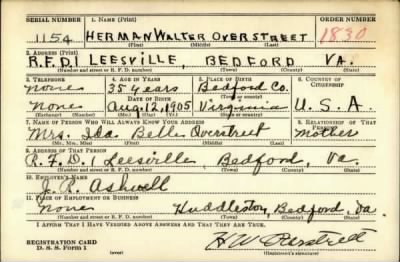 SERIAL NUMBER 1. NAME (Print) ORDER NUMBER
1154 HERMAN WALTER OVERSTREET 1830
(First) (Middle) (Last)
2. ADDRESS (Print)
R.F.D.1 LEESVILLE, BEDFORD VA.
(Number and street or R. F. D. number) (Town) (County) (State)
3. TELEPHONE 4. AGE IN YEARS 5. PLACE OF BIRTH 6. COUNTRY OF CITIZENSHIP
none 35 years Bedford Co.
DATE OF BIRTH
none Aug. 12, 1905 Virginia U.S.A.
(Exchange) (Number) (Mo.) (Day) (Yr.) (State or country)
7. NAME OF PERSON WHO WILL ALWAYS KNOW YOUR ADDRESS 8. RELATIONSHIP OF THAT PERSON
Mrs. Ida Belle Overstreet mother
(Mr., Mrs., Miss) (First) (Middle) (Last)
9. ADDRESS OF THAT PERSON
R.F.D. 1 Leesville, Bedford, Va.
(Number and street or R. F. D. number) (Town) (County) (State)
10. EMPLOYER'S NAME
J. R. Ashwell
11. PLACE OF EMPLOYMENT OR BUSINESS
none Huddleston, Bedford, Va.
(Number and street or R. F. D. number) (Town) (County) (State)
I AFFIRM THAT I HAVE VERIFIED ABOVE ANSWERS AND THAT THEY ARE TRUE.
REGISTRATION CARD
D. S. S. Form 1
H W Overstreet
(Registrant's signature)